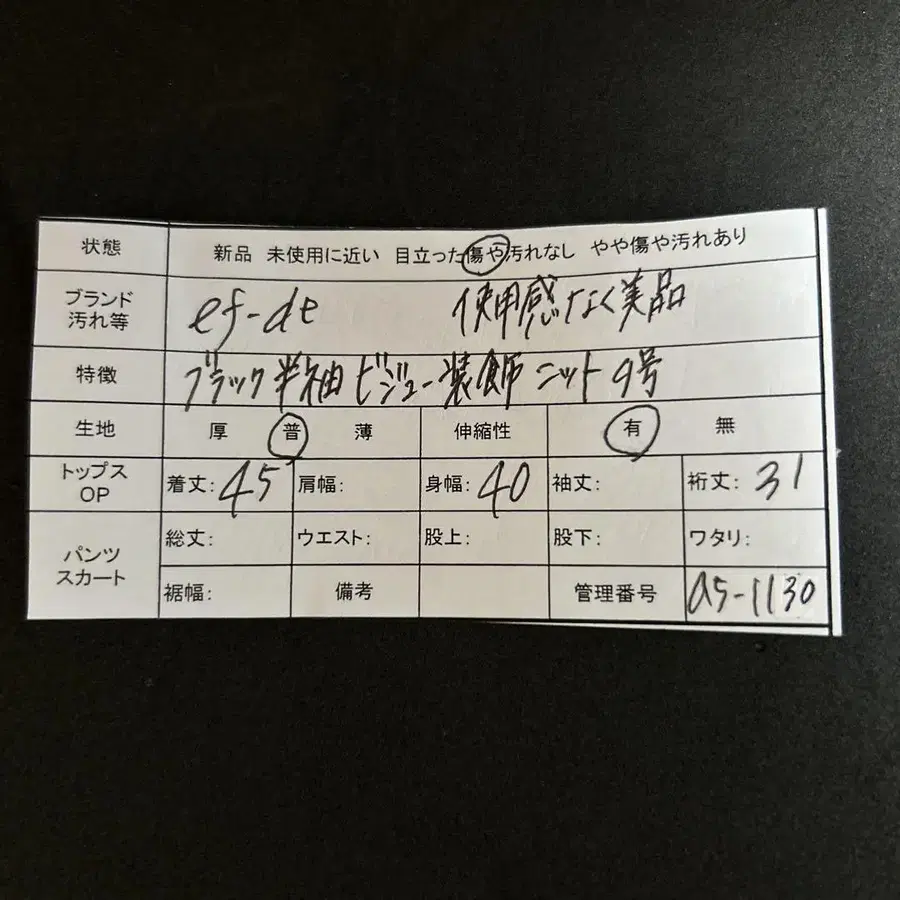 状態 新品 未使用に近い 目立った傷や汚れなし やや傷や汚れあり
ブランド
汚れ等 ef-de 使用感なく美品
特徴 ブラック半袖ビジュー装飾ニット9号
生地 厚 普 薄 伸縮性 有 無
トップス
OP 着丈:45 肩幅: 身幅:40 袖丈: 裄丈:31
パンツ
スカート 総丈: ウエスト: 股上: 股下: ワタリ:
裾幅: 備考 管理番号 a5-1130